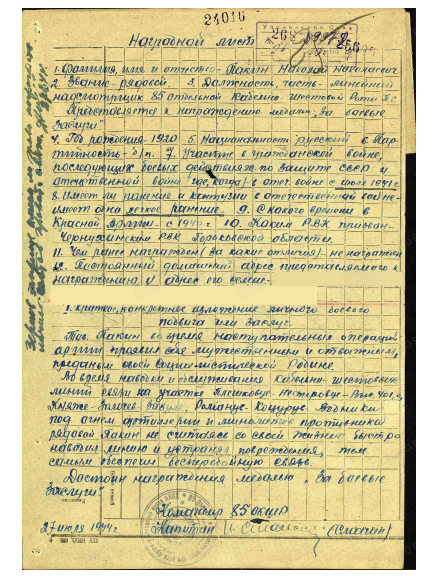 24016
Наградной лист
1. Фамилия, имя и отчество - Пакин Николай
2. Звание - рядовой 3. Должность, часть - линейный
надсмотрщик 85 отдельной Кабельно-шестовой Роты
Представляется к награждению медалью "За боевые
Заслуги"
4. Год рождения - 1920 5. Национальность русский 6. Пар-
тийность - б/п. 7. Участие в гражданской войне,
последующих боевых действиях по защите СССР и
отечественной войне (где, когда) в отеч. войне с июля 1941 г.
8. Имеет ли ранение и контузии в отечественной войне -
имеет одно легкое ранение. 9. С какого времени в
Красной Армии - с 1940 г. 10. Каким РВК призван -
РВК Горьковской области.
11. Чем ранее награжден (за какие отличия) - не награжден
12. Постоянный домашний адрес представляемого к
награждению и адрес его семьи -
1. Краткое, конкретное изложение личного боевого
подвига или заслуг.
Тов. Пакин во время наступательных операций
армии проявил себя мужественным и отважным,
преданным своей Социалистической Родине.
Во время наводки и обслуживания кабельно-шестовых
линий связи на участке
под огнем артиллерии и минометов противника
рядовой Пакин не считаясь со своей жизнью быстро
наводил линию и устранял повреждения, тем
самым обеспечил бесперебойную связь.
Достоин награждения медалью "За боевые
Заслуги"
Командир 85 ОКШР
27 июля 1944 г. Капитан